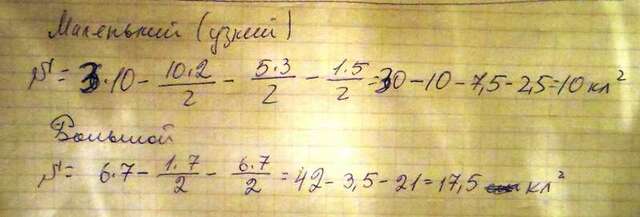 Маленький (узкий)
S = 3·10 − 10·2/2 − 5·3/2 − 1·5/2 = 30 − 10 − 7,5 − 2,5 = 10 кл²
Большой
S = 6·7 − 1·7/2 − 6·7/2 = 42 − 3,5 − 21 = 17,5 кл²